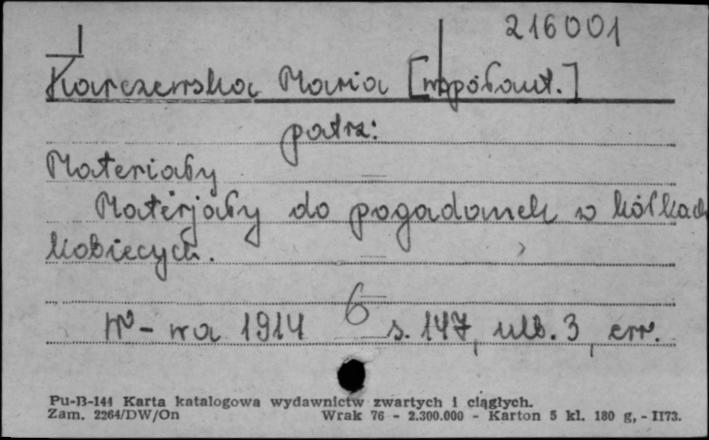 216001
Karczewska Maria [współaut.]
patrz:
Materiały
Materjały do pogadanek w kółkach
kobiecych.
6
W-wa 1914 s. 147, ulb. 3, err.
Pu-B-144 Karta katalogowa wydawnictw zwartych i ciągłych.
Zam. 2264/DW/On Wrak 76 - 2.300.000 - Karton 5 kl. 180 g, - II73.